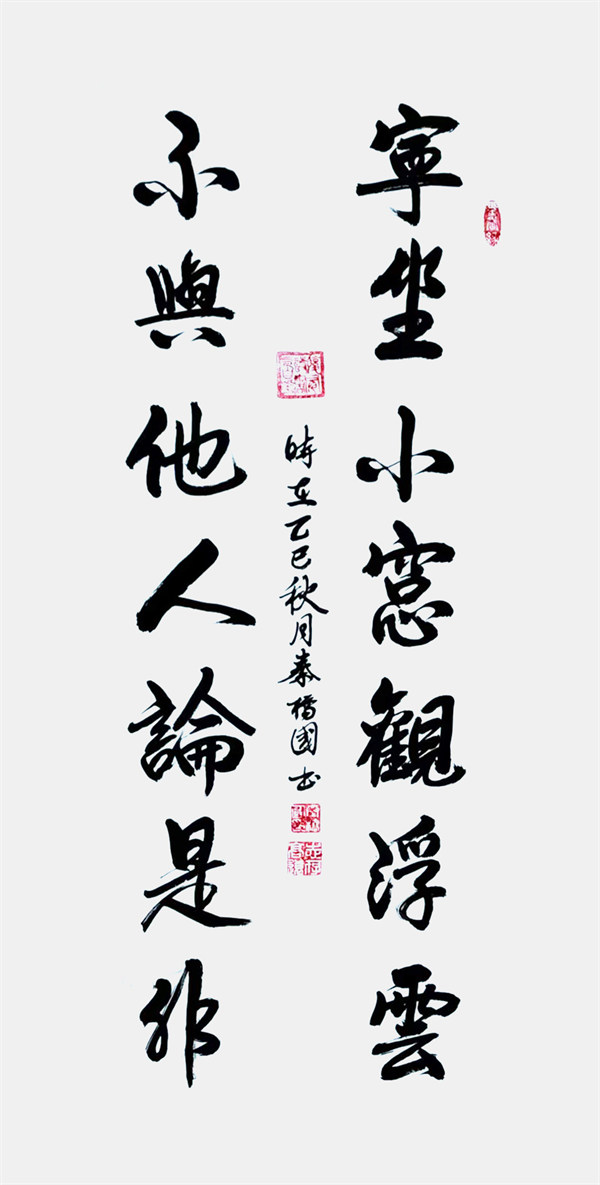 寧坐小窓觀浮雲
不與他人論是非
時在乙巳秋月秦橋國书